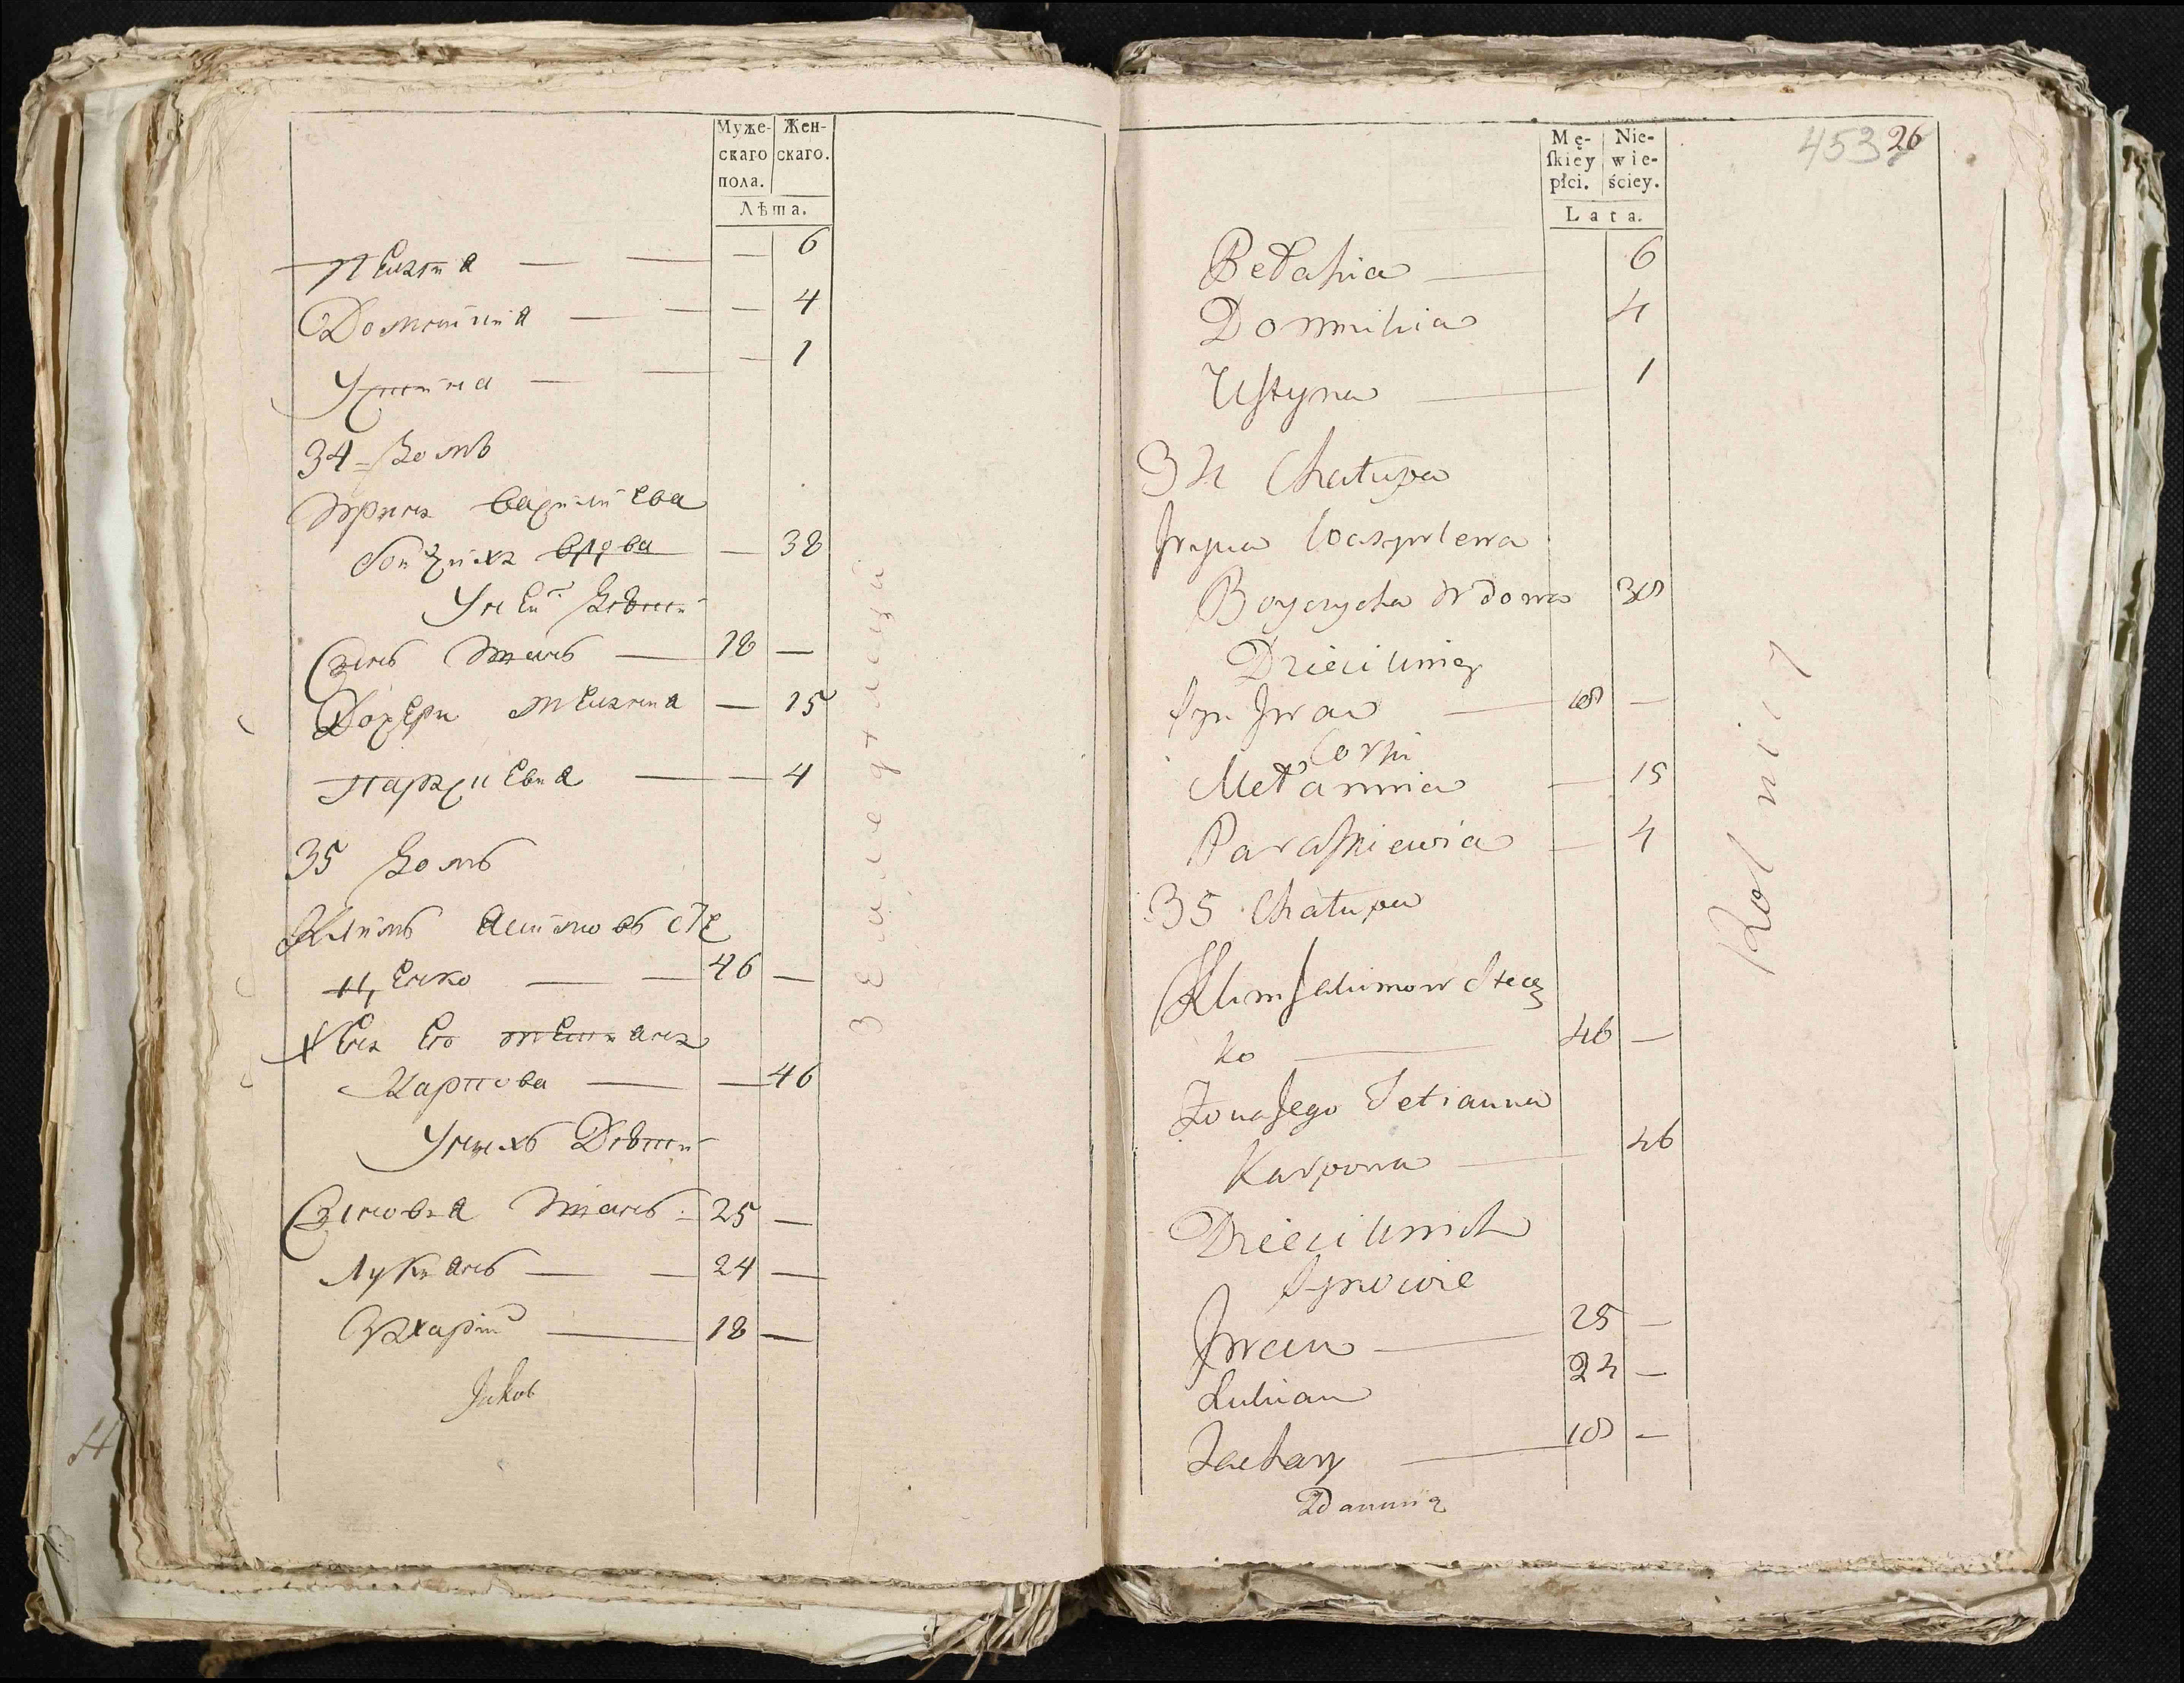 Муже-
скаго
пола.
Жен-
скаго.
Лѣта.
6
Домникия — — — 4
Устина — — — 1
34 = Домъ
Василиева
вдова — 38
У ней Дѣти
Сынъ Иванъ — 18 —
Дочери Мелания — 15
Параскиевия — — 4
35 Домъ
Климъ Якимовъ Сте
ценко — — 46 —
Жена Его Тетияна
Карпова — — 46
У нихъ Дѣти
Сыновья Иванъ 25 —
Лукиянъ — — 24 —
Захарій — 18 —
Jakob
Земледѣлецъ
453 26
Mę-
ſkiey
płci.
Nie-
wie-
ściey.
Lata.
Pełahia — 6
Domnikia 4
Uſtyna — 1
34 Chałupa
Iryna Wasylewa
Boyczycha Wdowa 38
Dzieci u niey
Syn Iwan — 18 —
Corki
Mełannia — 15
Paraſkiewia — 4
35 Chałupa
Klim Jakimow Stecz
ko — 46 —
Żona Jego Tetianna
Karpowa — 46
Dzieci u nich
Synowie
Iwan — 25 —
Lukian 24 —
Zachary — 18 —
Rolnicy